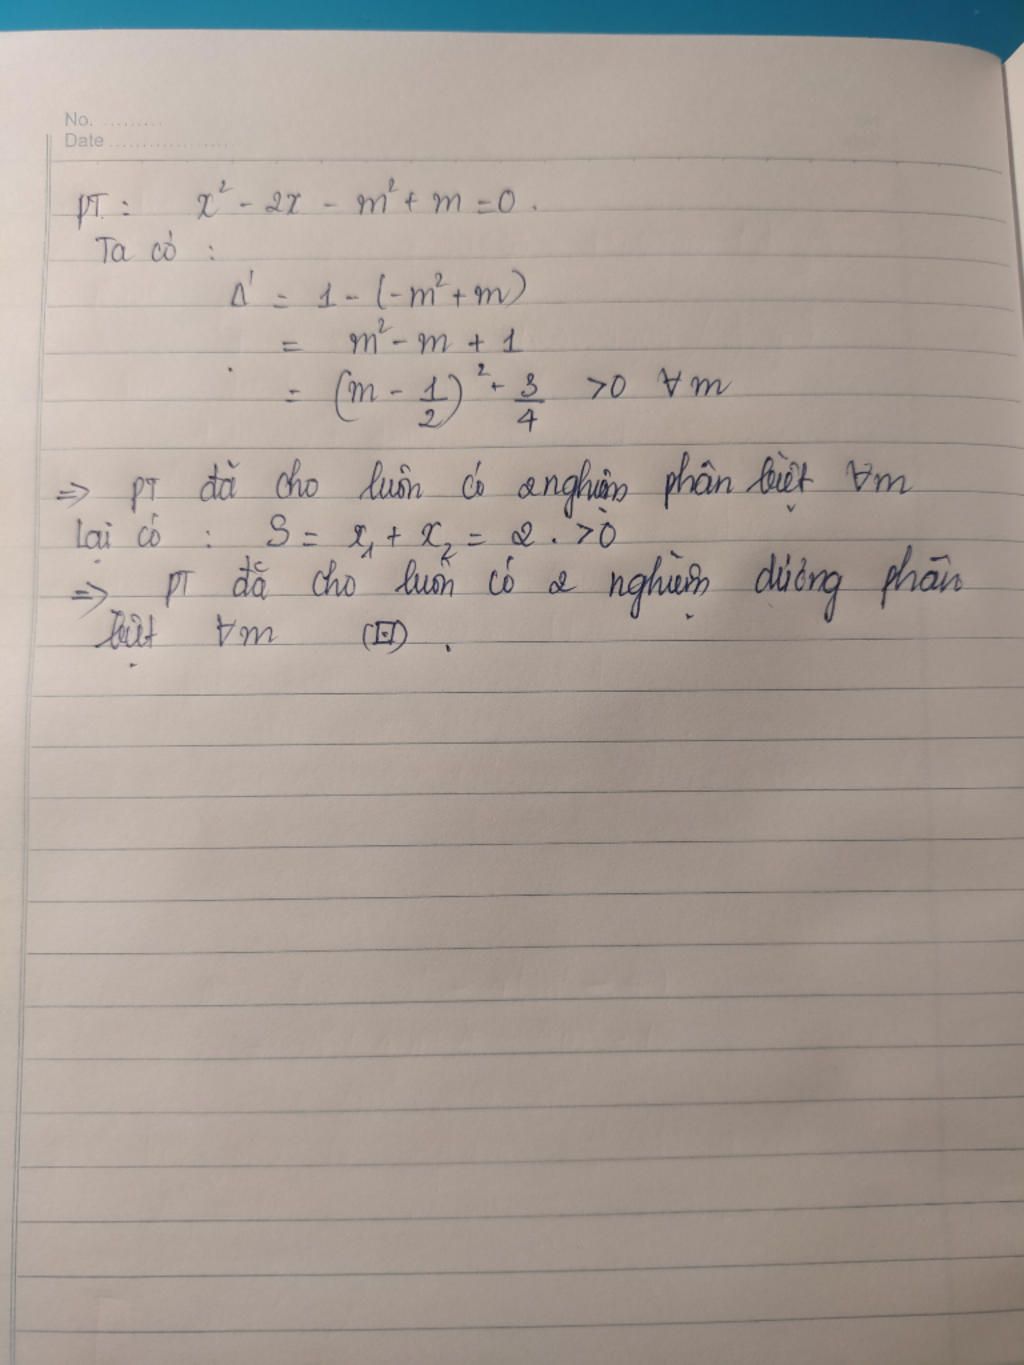 No. .........
Date ..................
PT : x² - 2x - m² + m = 0 .
Ta có :
Δ' = 1 - (-m² + m)
= m² - m + 1
= (m - 1/2)² + 3/4 >0 ∀m
⇒ PT đã cho luôn có 2 nghiệm phân biệt ∀m
lại có : S = x₁ + x₂ = 2 . >0
⇒ PT đã cho luôn có 2 nghiệm dương phân
biệt ∀m